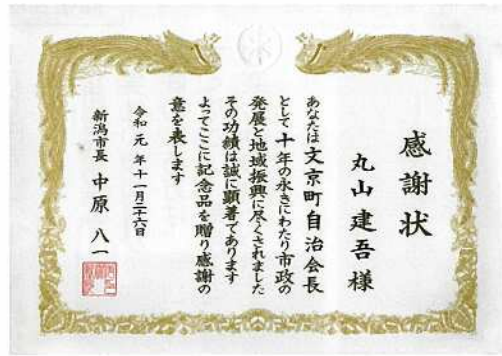 感謝状
丸山建吾様
あなたは文京町自治会長
として十年の永きにわたり市政の
発展と地域振興に尽くされました
その功績は誠に顕著であります
よってここに記念品を贈り感謝の
意を表します
令和元年十一月二十六日
新潟市長 中原八一